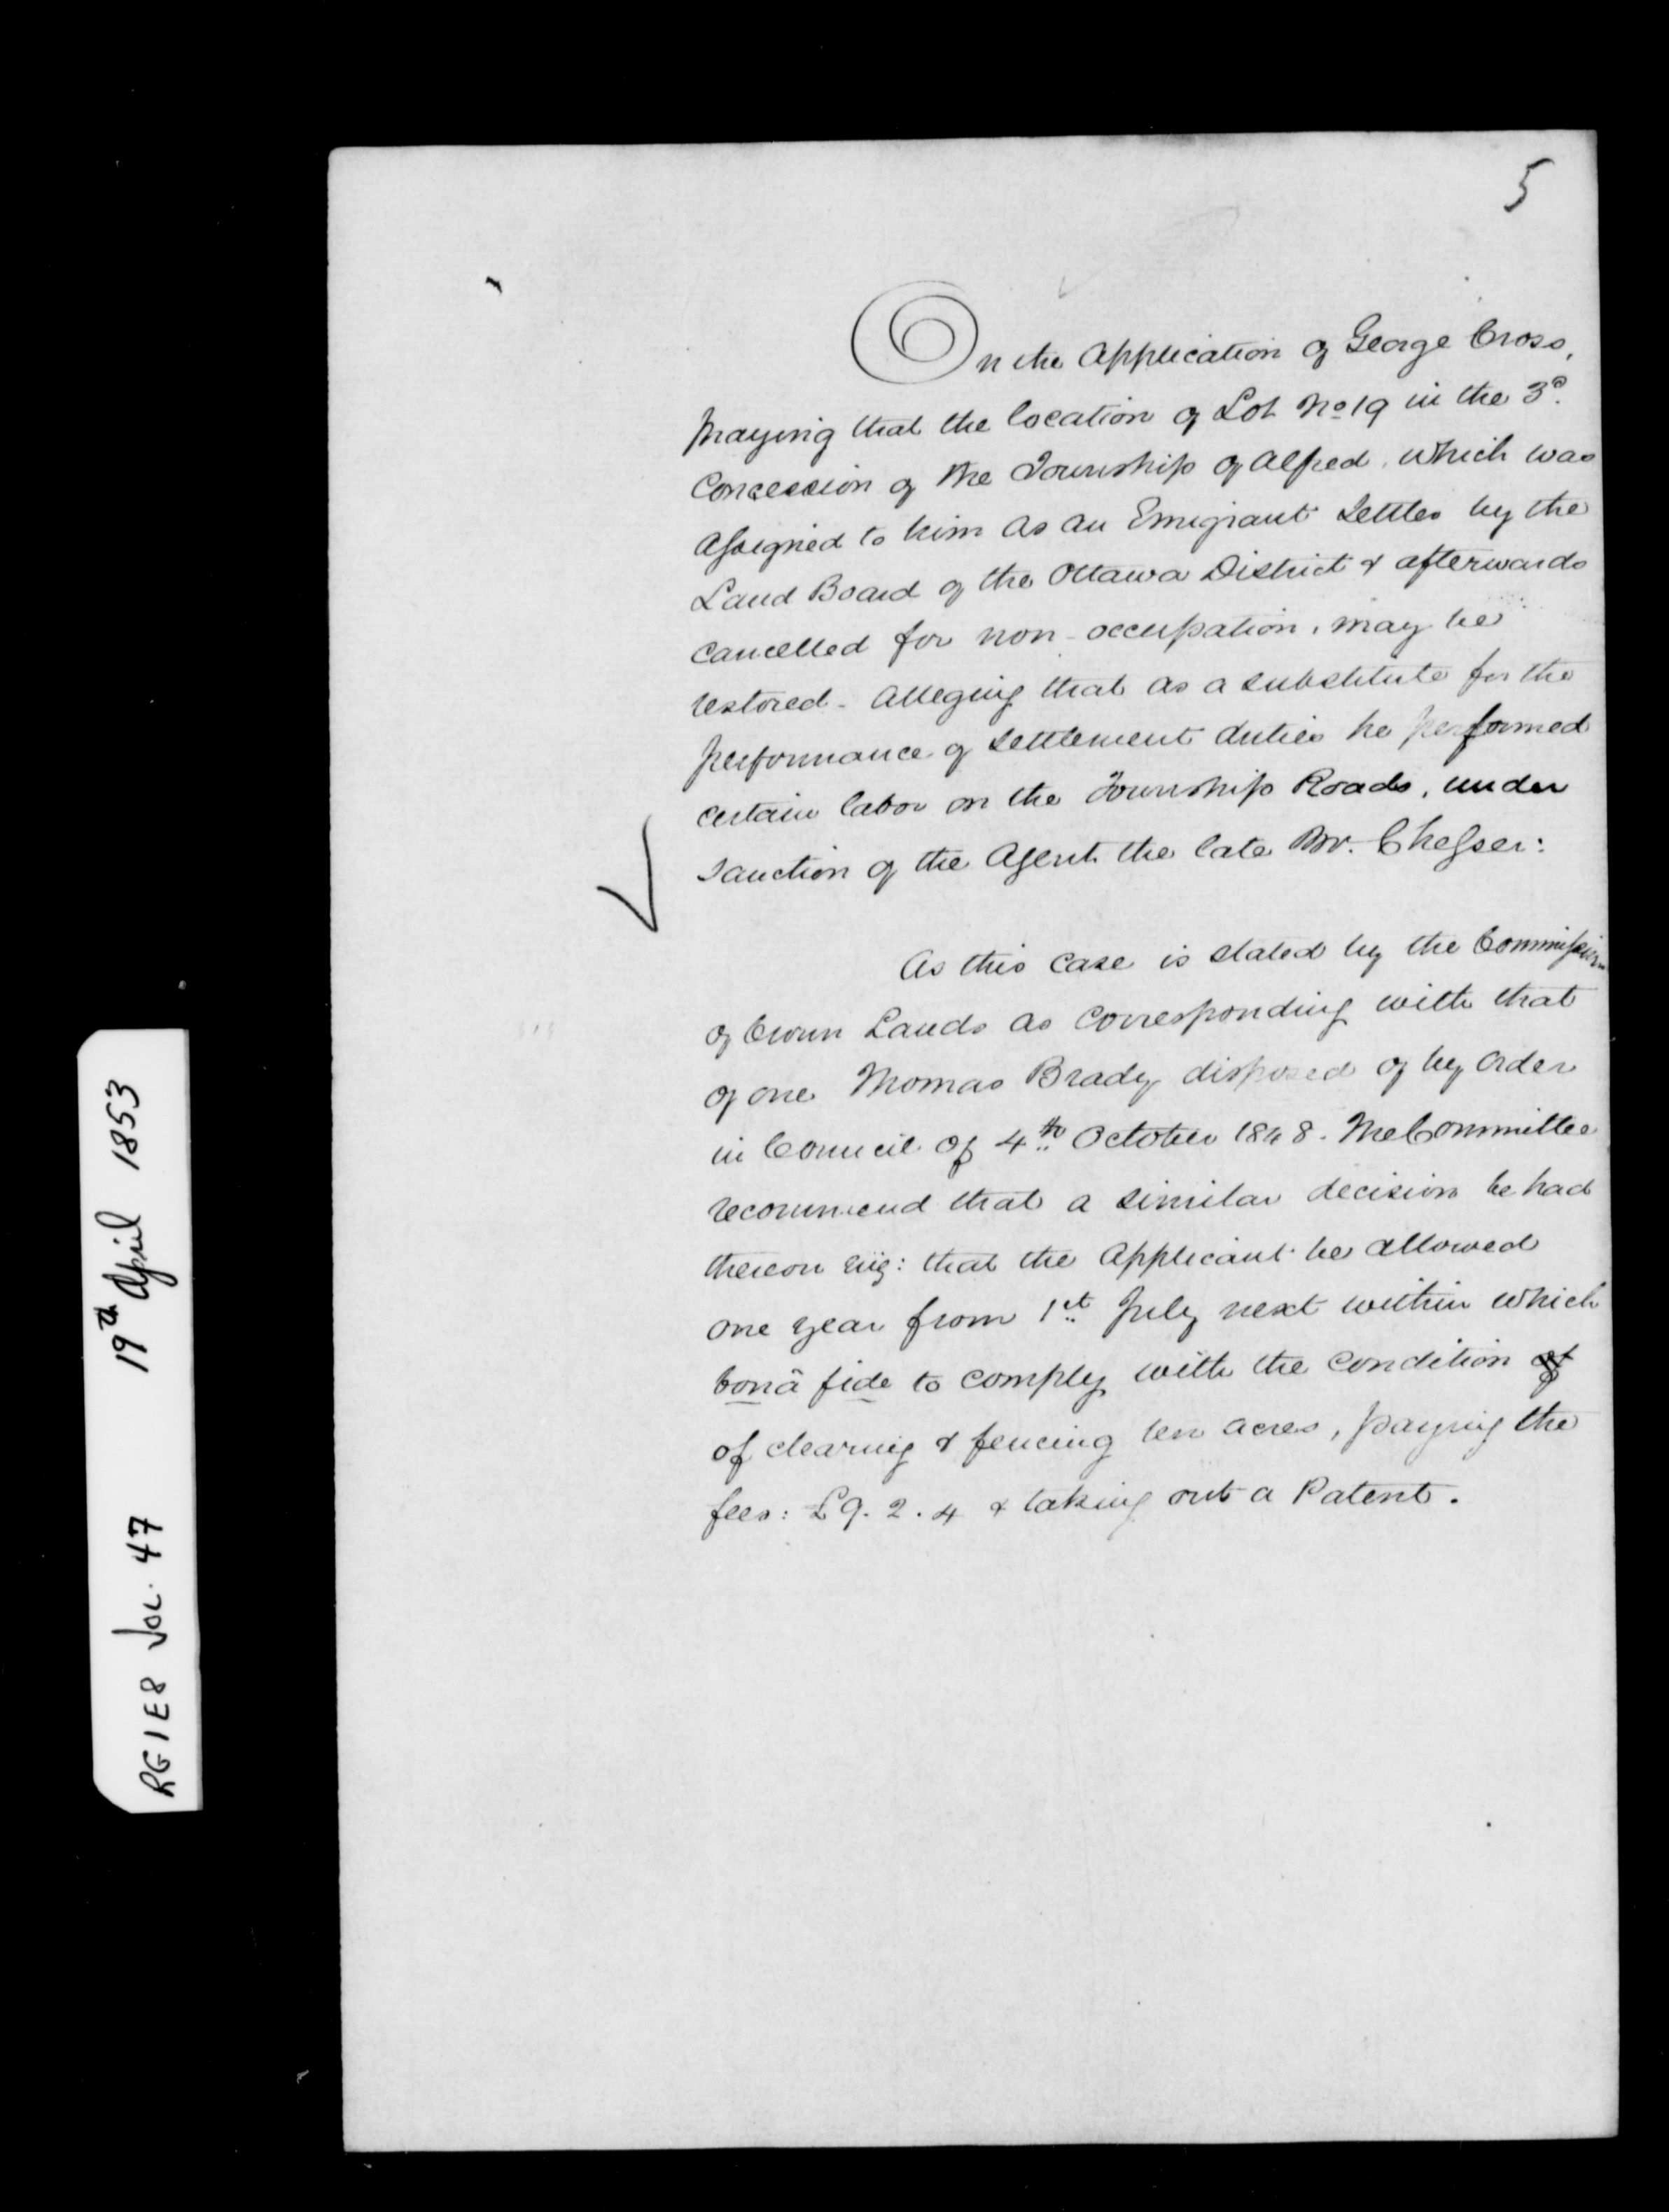 5
On the Application of George Cross,
praying that the location of Lot No 19 in the 3d.
Concession of the Township of Alfred, which was
assigned to him as an Emigrant Settler by the
Land Board of the Ottawa District & afterwards
cancelled for non-occupation, may be
restored - Alleging that as a substitute for the
performance of settlement duties he performed
certain labor on the Township Roads, under
sanction of the Agent the late Mr. Chesser:
As this case is stated by the Commissioner
of Crown Lands as corresponding with that
of one Thomas Brady disposed of by Order
in Council of 4th October 1848. The Committee
recommend that a similar decision be had
thereon viz: that the Applicant be allowed
one year from 1st July next within which
bonâ fide to comply with the condition of
of clearing & fencing ten acres, paying the
fees: £9.2.4 & taking out a Patent.
RG1E8 Vol. 47 19th April 1853